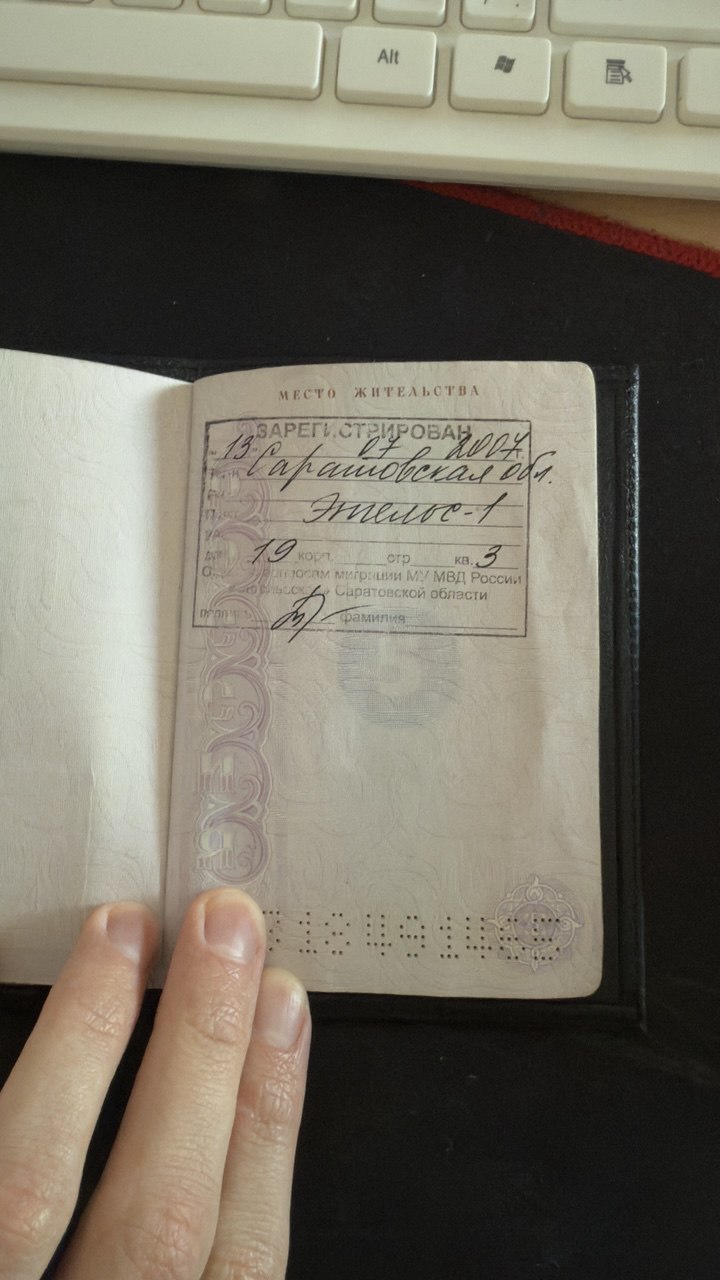 Alt
МЕСТО ЖИТЕЛЬСТВА
ЗАРЕГИСТРИРОВАН
13 07 2007
Саратовская обл.
Энгельс-1
19 корп. стр кв. 3
миграции МУ МВД России
Саратовской области
подпись фамилия